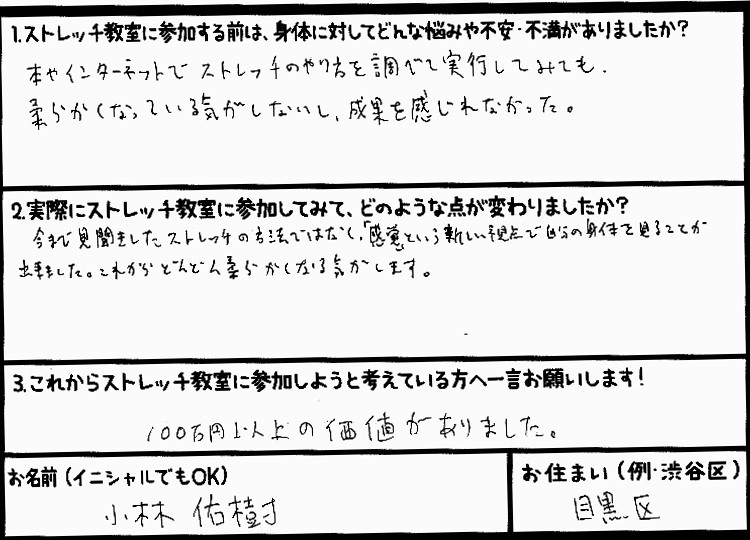 1.ストレッチ教室に参加する前は、身体に対してどんな悩みや不安・不満がありましたか?
本やインターネットでストレッチのやり方を調べて実行してみても、
柔らかくなっている気がしないし、成果を感じれなかった。
2.実際にストレッチ教室に参加してみて、どのような点が変わりましたか?
今まで見聞きしたストレッチの方法ではなく、「感覚」という新しい視点で自分の身体を見ることが
出来ました。これからどんどん柔らかくなる気がします。
3.これからストレッチ教室に参加しようと考えている方へ一言お願いします!
100万円以上の価値がありました。
お名前(イニシャルでもOK)
小林 佑樹
お住まい(例・渋谷区)
目黒区